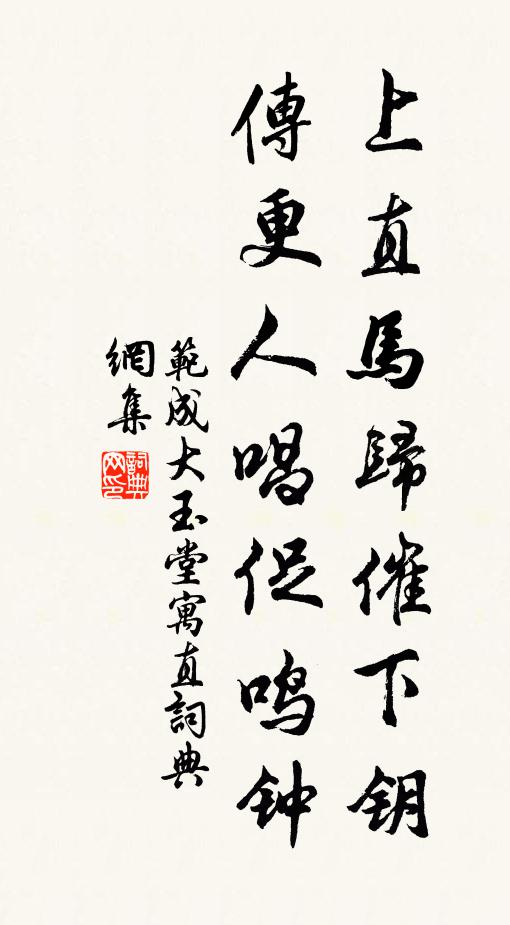 上直馬歸催下钥
傳更人唱促鸣钟
範成大玉堂寓直詞典
網集
詞典网印